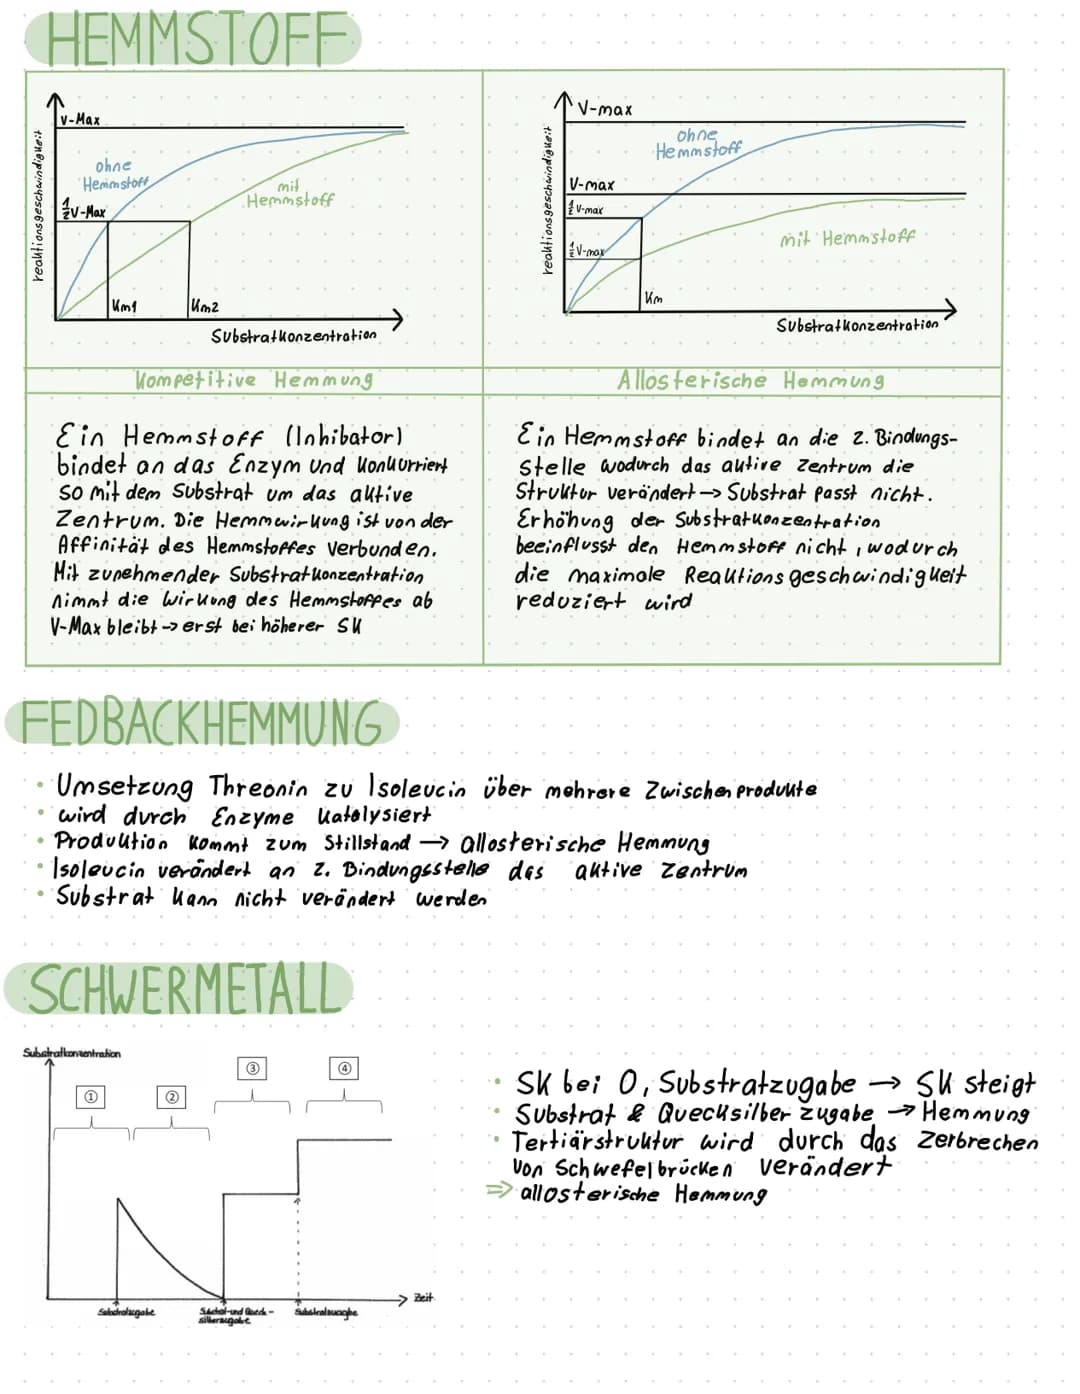 HEMMSTOFF
V-Max
ohne
Hemmstoff
1/2 V-Max
mit
Hemmstoff
Km1
Km2
reaktionsgeschwindigkeit
Substratkonzentration
V-max
ohne
Hemmstoff
V-max
1/2 V-max
1/2 V-max
mit Hemmstoff
Km
reaktionsgeschwindigkeit
Substratkonzentration
Kompetitive Hemmung
Allosterische Hemmung
Ein Hemmstoff (Inhibator)
bindet an das Enzym und konkurriert
somit dem Substrat um das aktive
Zentrum. Die Hemmwirkung ist von der
Affinität des Hemmstoffes verbunden.
Mit zunehmender Substratkonzentration
nimmt die Wirkung des Hemmstoffes ab
V-Max bleibt → erst bei höherer SK
Ein Hemmstoff bindet an die 2. Bindungs-
stelle wodurch das aktive Zentrum die
Struktur verändert → Substrat passt nicht.
Erhöhung der Substratkonzentration
beeinflusst den Hemmstoff nicht, wodurch
die maximale Reaktionsgeschwindigkeit
reduziert wird
FEDBACKHEMMUNG
• Umsetzung Threonin zu Isoleucin über mehrere Zwischenprodukte
• wird durch Enzyme katalysiert
• Produktion kommt zum Stillstand → allosterische Hemmung
• Isoleucin verändert an 2. Bindungsstelle das aktive Zentrum
• Substrat kann nicht verändert werden
SCHWERMETALL
Substratkonzentration
①
②
③
④
Zeit
Substratzugabe
Substrat- und Queck-
silberzugabe
Substratzugabe
• SK bei 0, Substratzugabe → SK steigt
• Substrat & Quecksilber zugabe → Hemmung
• Tertiärstruktur wird durch das Zerbrechen
von Schwefelbrücken verändert
⇒ allosterische Hemmung